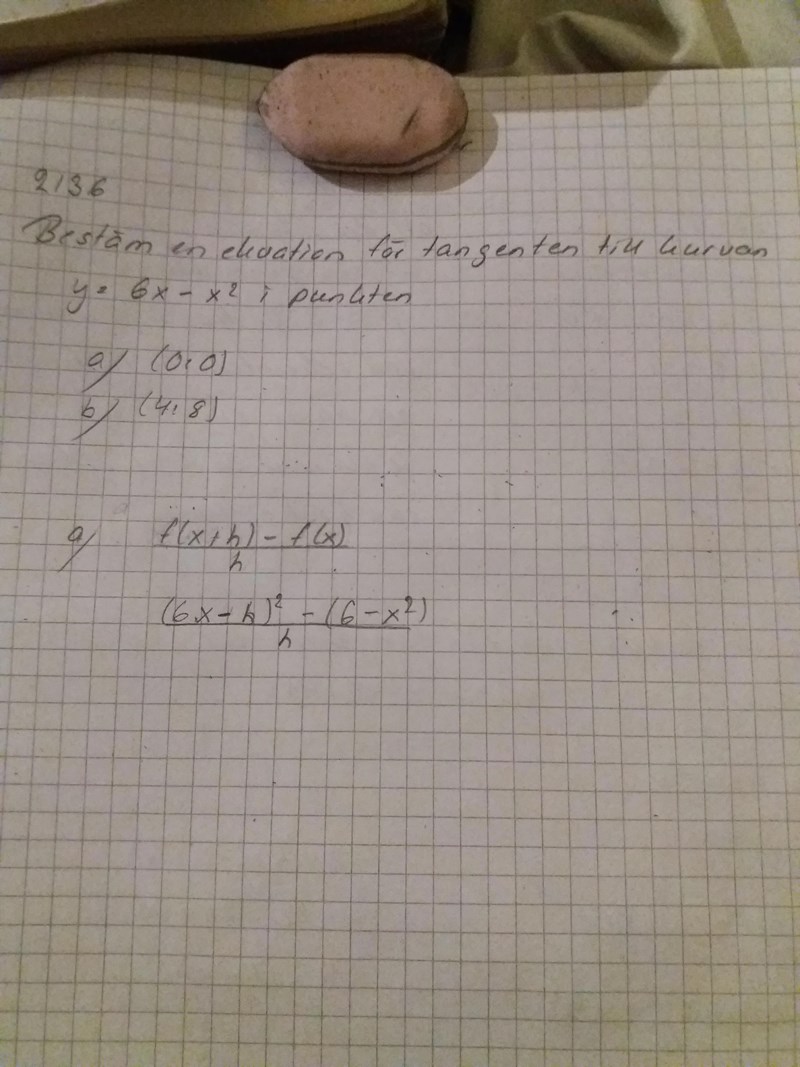 2136
Bestäm en ekvation för tangenten till kurvan
y = 6x - x² i punkten
a) (0,0)
b) (4,8)
a) f(x+h) - f(x)
h
(6x-h)² - (6-x²)
h